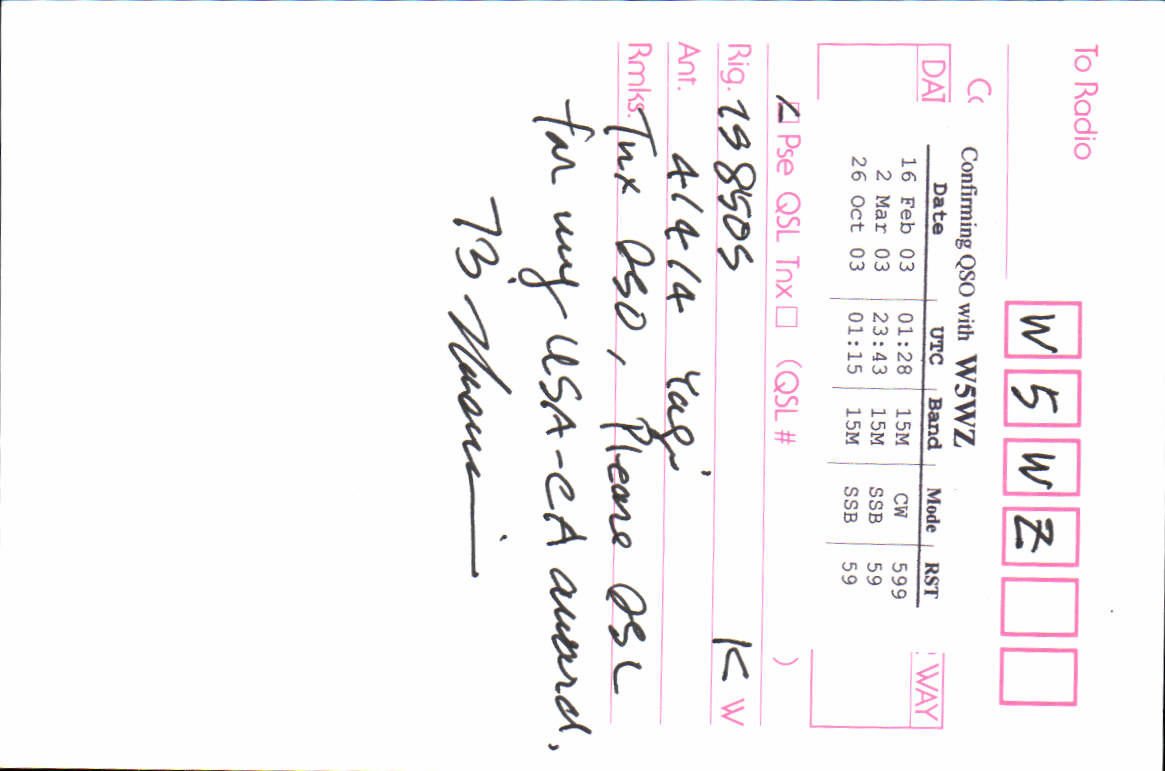 To Radio W 5 W Z
Confirming QSO with W5WZ
DAT WAY
Date UTC Band Mode RST
16 Feb 03 01:28 15M CW 599
2 Mar 03 23:43 15M SSB 59
26 Oct 03 01:15 15M SSB 59
Pse QSL Tnx (QSL # )
Rig. K W
Ant. 4/4/4 Yagi
Rmks. Tnx QSO, Please QSL
for my USA-CA award.
73